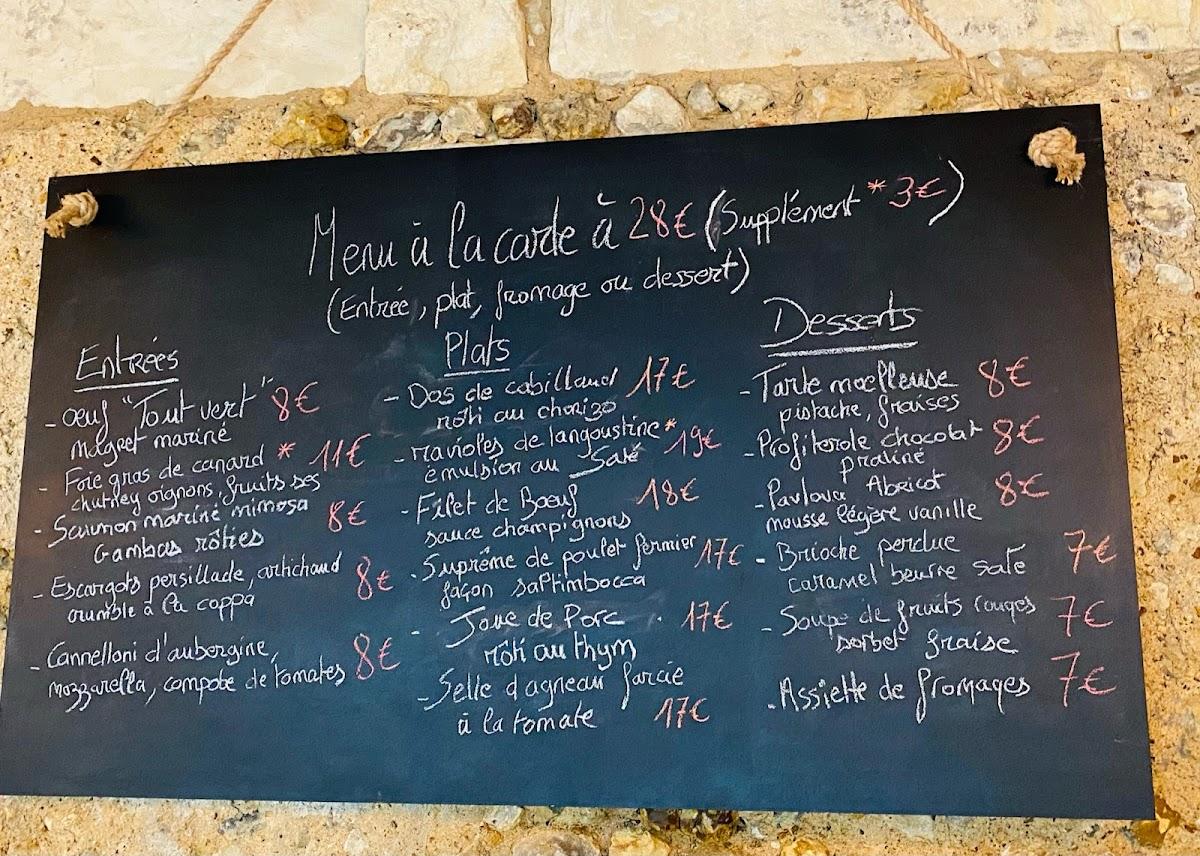 Menu à la carte à 28€ (Supplément * 3€)
(Entrée, plat, fromage ou dessert)
Entrées
- œuf "Tout vert" 8€
magret mariné
- Foie gras de canard * 11€
chutney oignons, fruits secs
- Saumon mariné mimosa
Gambas rôties 8€
- Escargots persillade, artichaud
crumble à la coppa 8€
- Cannelloni d'aubergine,
mozzarella, compote de tomates 8€
Plats
- Dos de cabillaud 17€
rôti au chorizo
- ravioles de langoustine * 19€
émulsion au Saté
- Filet de Bœuf 18€
sauce champignons
- Suprême de poulet fermier 17€
façon saltimbocca
- Joue de Porc . 17€
rôti au thym
- Selle d'agneau farcie
à la tomate 17€
Desserts
- Tarte moelleuse 8€
pistache, fraises
- Profiterole chocolat 8€
praliné
- Pavlova Abricot 8€
mousse légère vanille
- Brioche perdue 7€
caramel beurre salé
- Soupe de fruits rouges 7€
sorbet fraise
- Assiette de fromages 7€